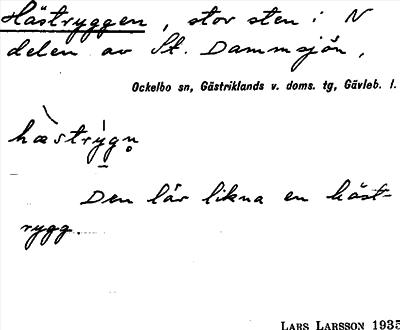 Hästryggen, stor sten i N
delen av St. Dammsjön,
Ockelbo sn, Gästriklands v. doms. tg, Gävleb. l.
hæstrygn̥
Den lär likna en häst-
rygg.
LARS LARSSON 1935